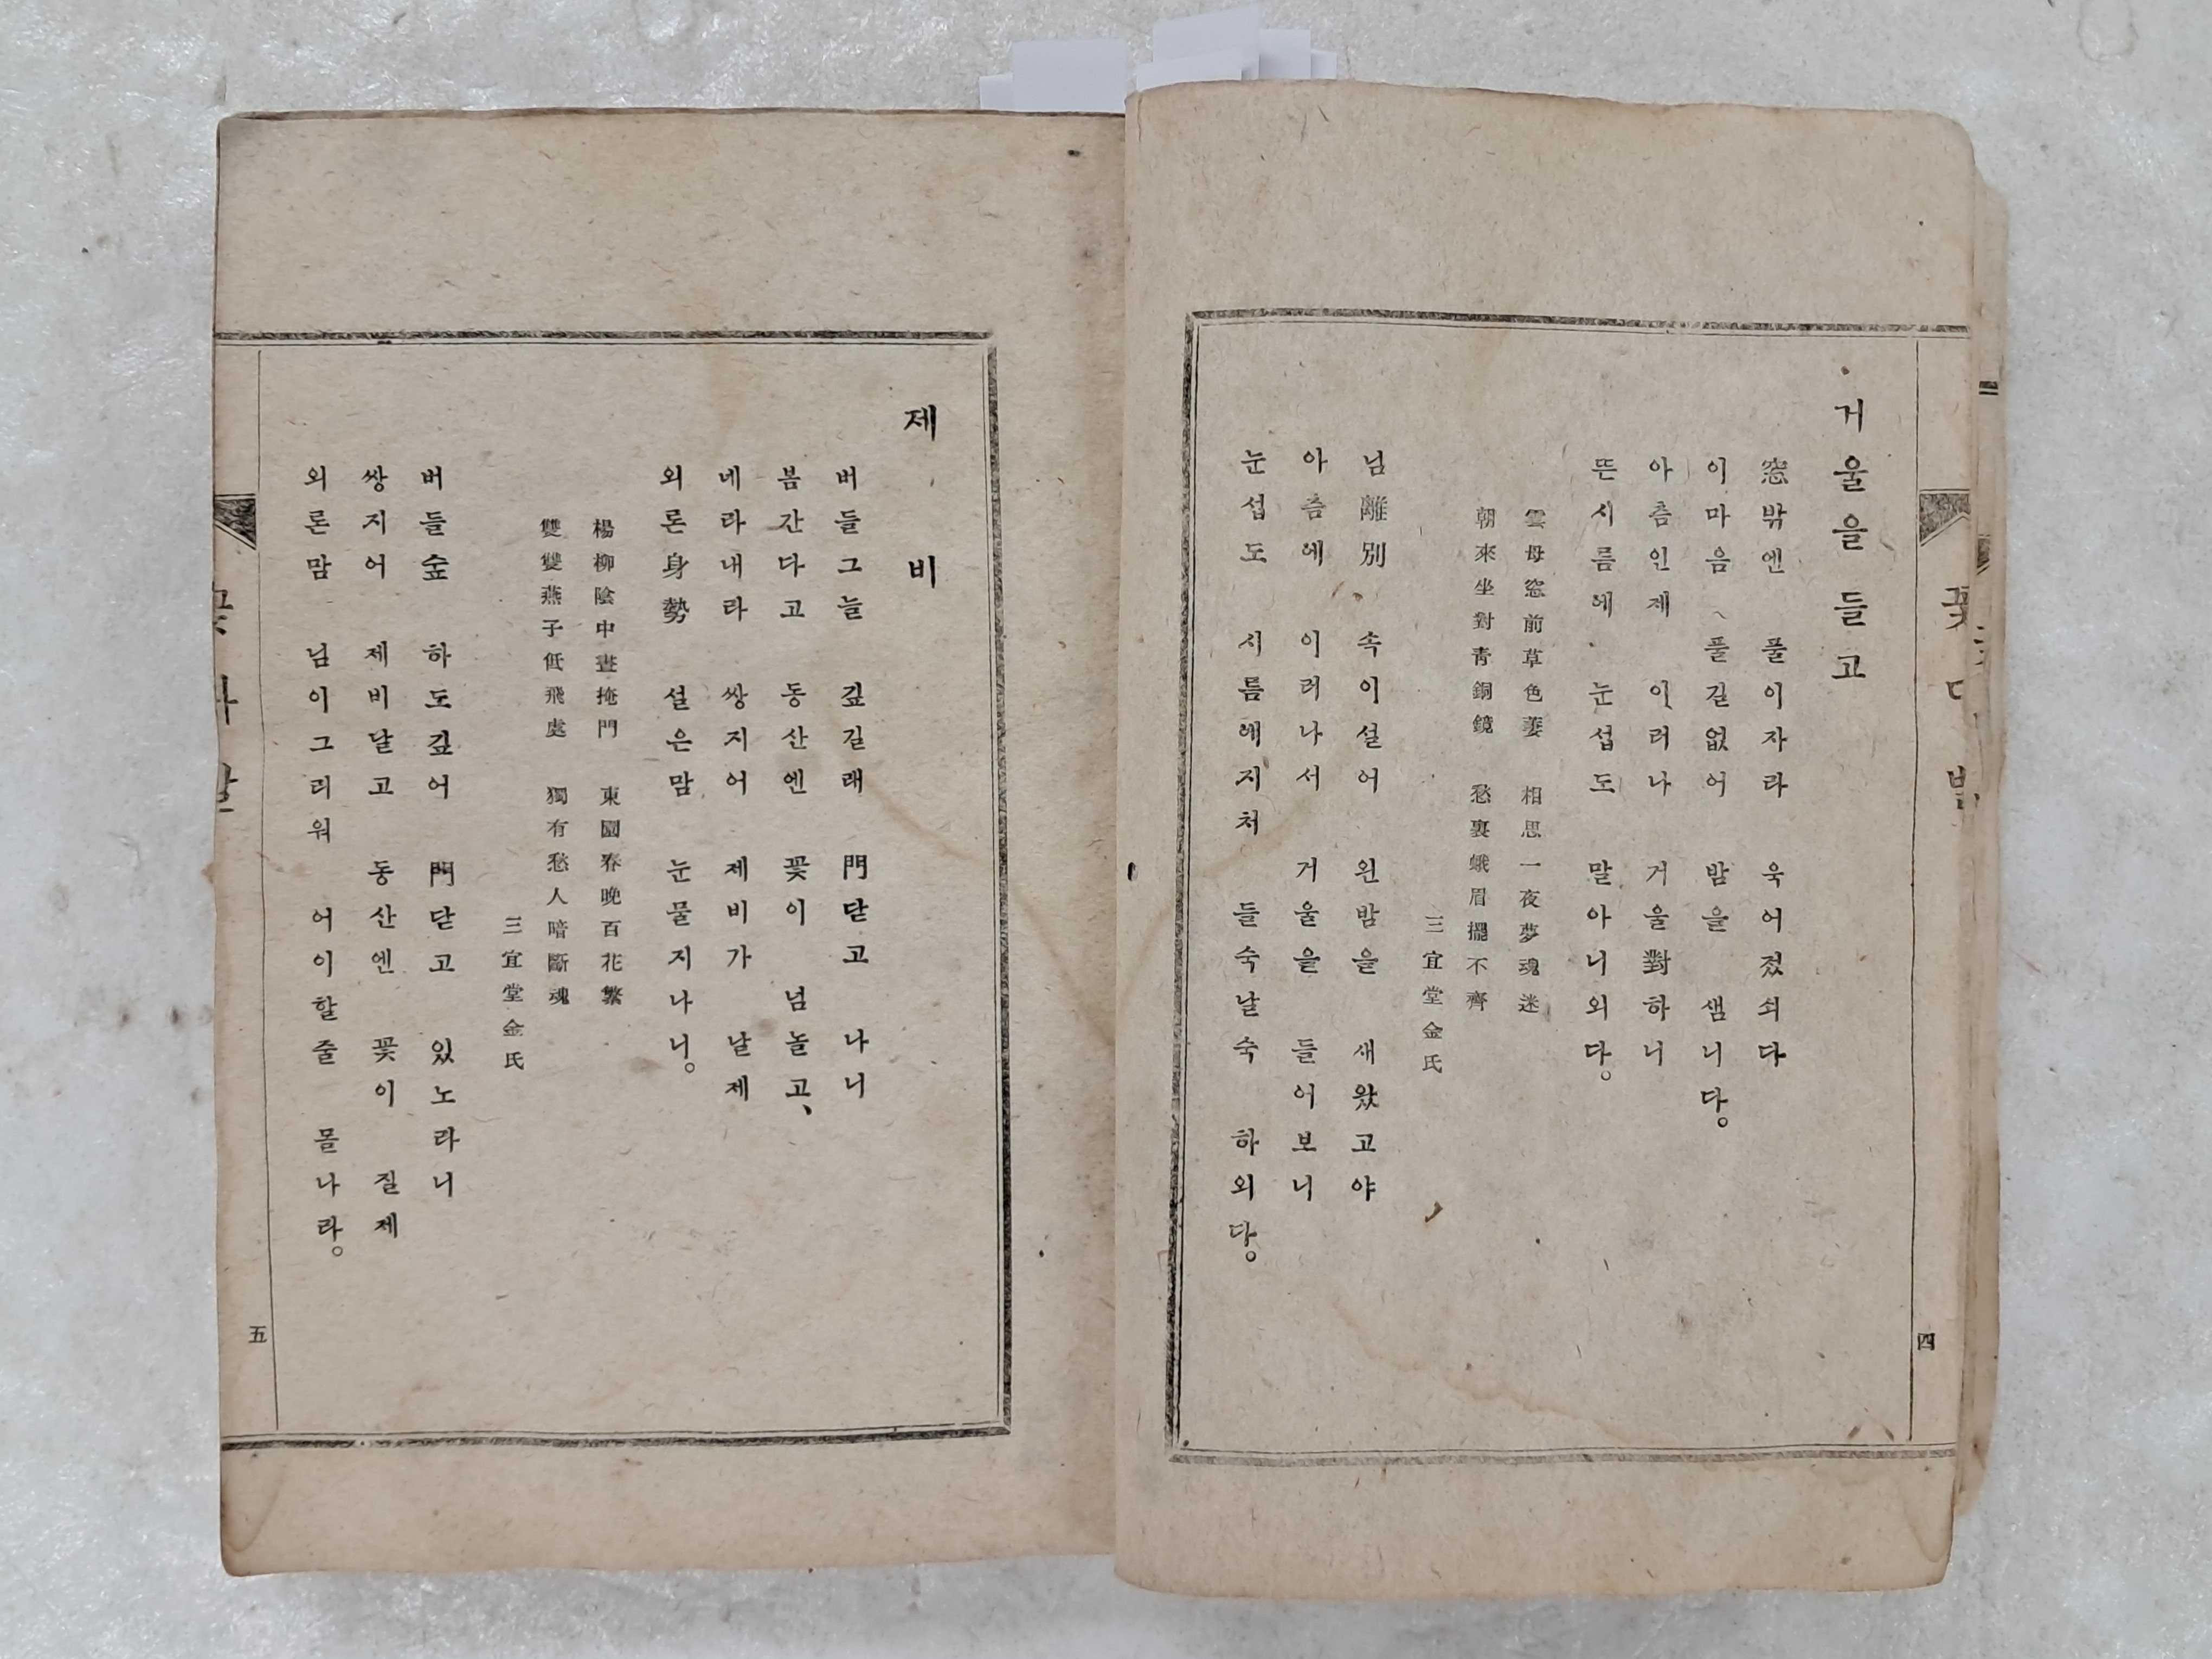 거울을 들고
窓밖엔 풀이자라 욱어젔쇠다
이마음 풀길없어 밤을 샘니다。
아츰인제 이러나 거울對하니
뜬시름에 눈섭도 말아니외다。
雲母窓前草色萋 相思一夜夢魂迷
朝來坐對靑銅鏡 愁裏蛾眉擺不齊
三宜堂金氏
님離別 속이설어 왼밤을 새왔고야
아츰에 이러나서 거울을 들어보니
눈섭도 시름에지처 들숙날숙 하외다。
四
제비
버들그늘 깊길래 門닫고 나니
봄간다고 동산엔 꽃이 넘놀고、
네라내라 쌍지어 제비가 날제
외론身勢 설은맘 눈물지나니。
楊柳陰中晝掩門 東園春晩百花繁
雙雙燕子低飛處 獨有愁人暗斷魂
三宜堂金氏
버들숲 하도깊어 門닫고 있노라니
쌍지어 제비날고 동산엔 꽃이 질제
외론맘 님이그리워 어이할줄 몰나라。
五